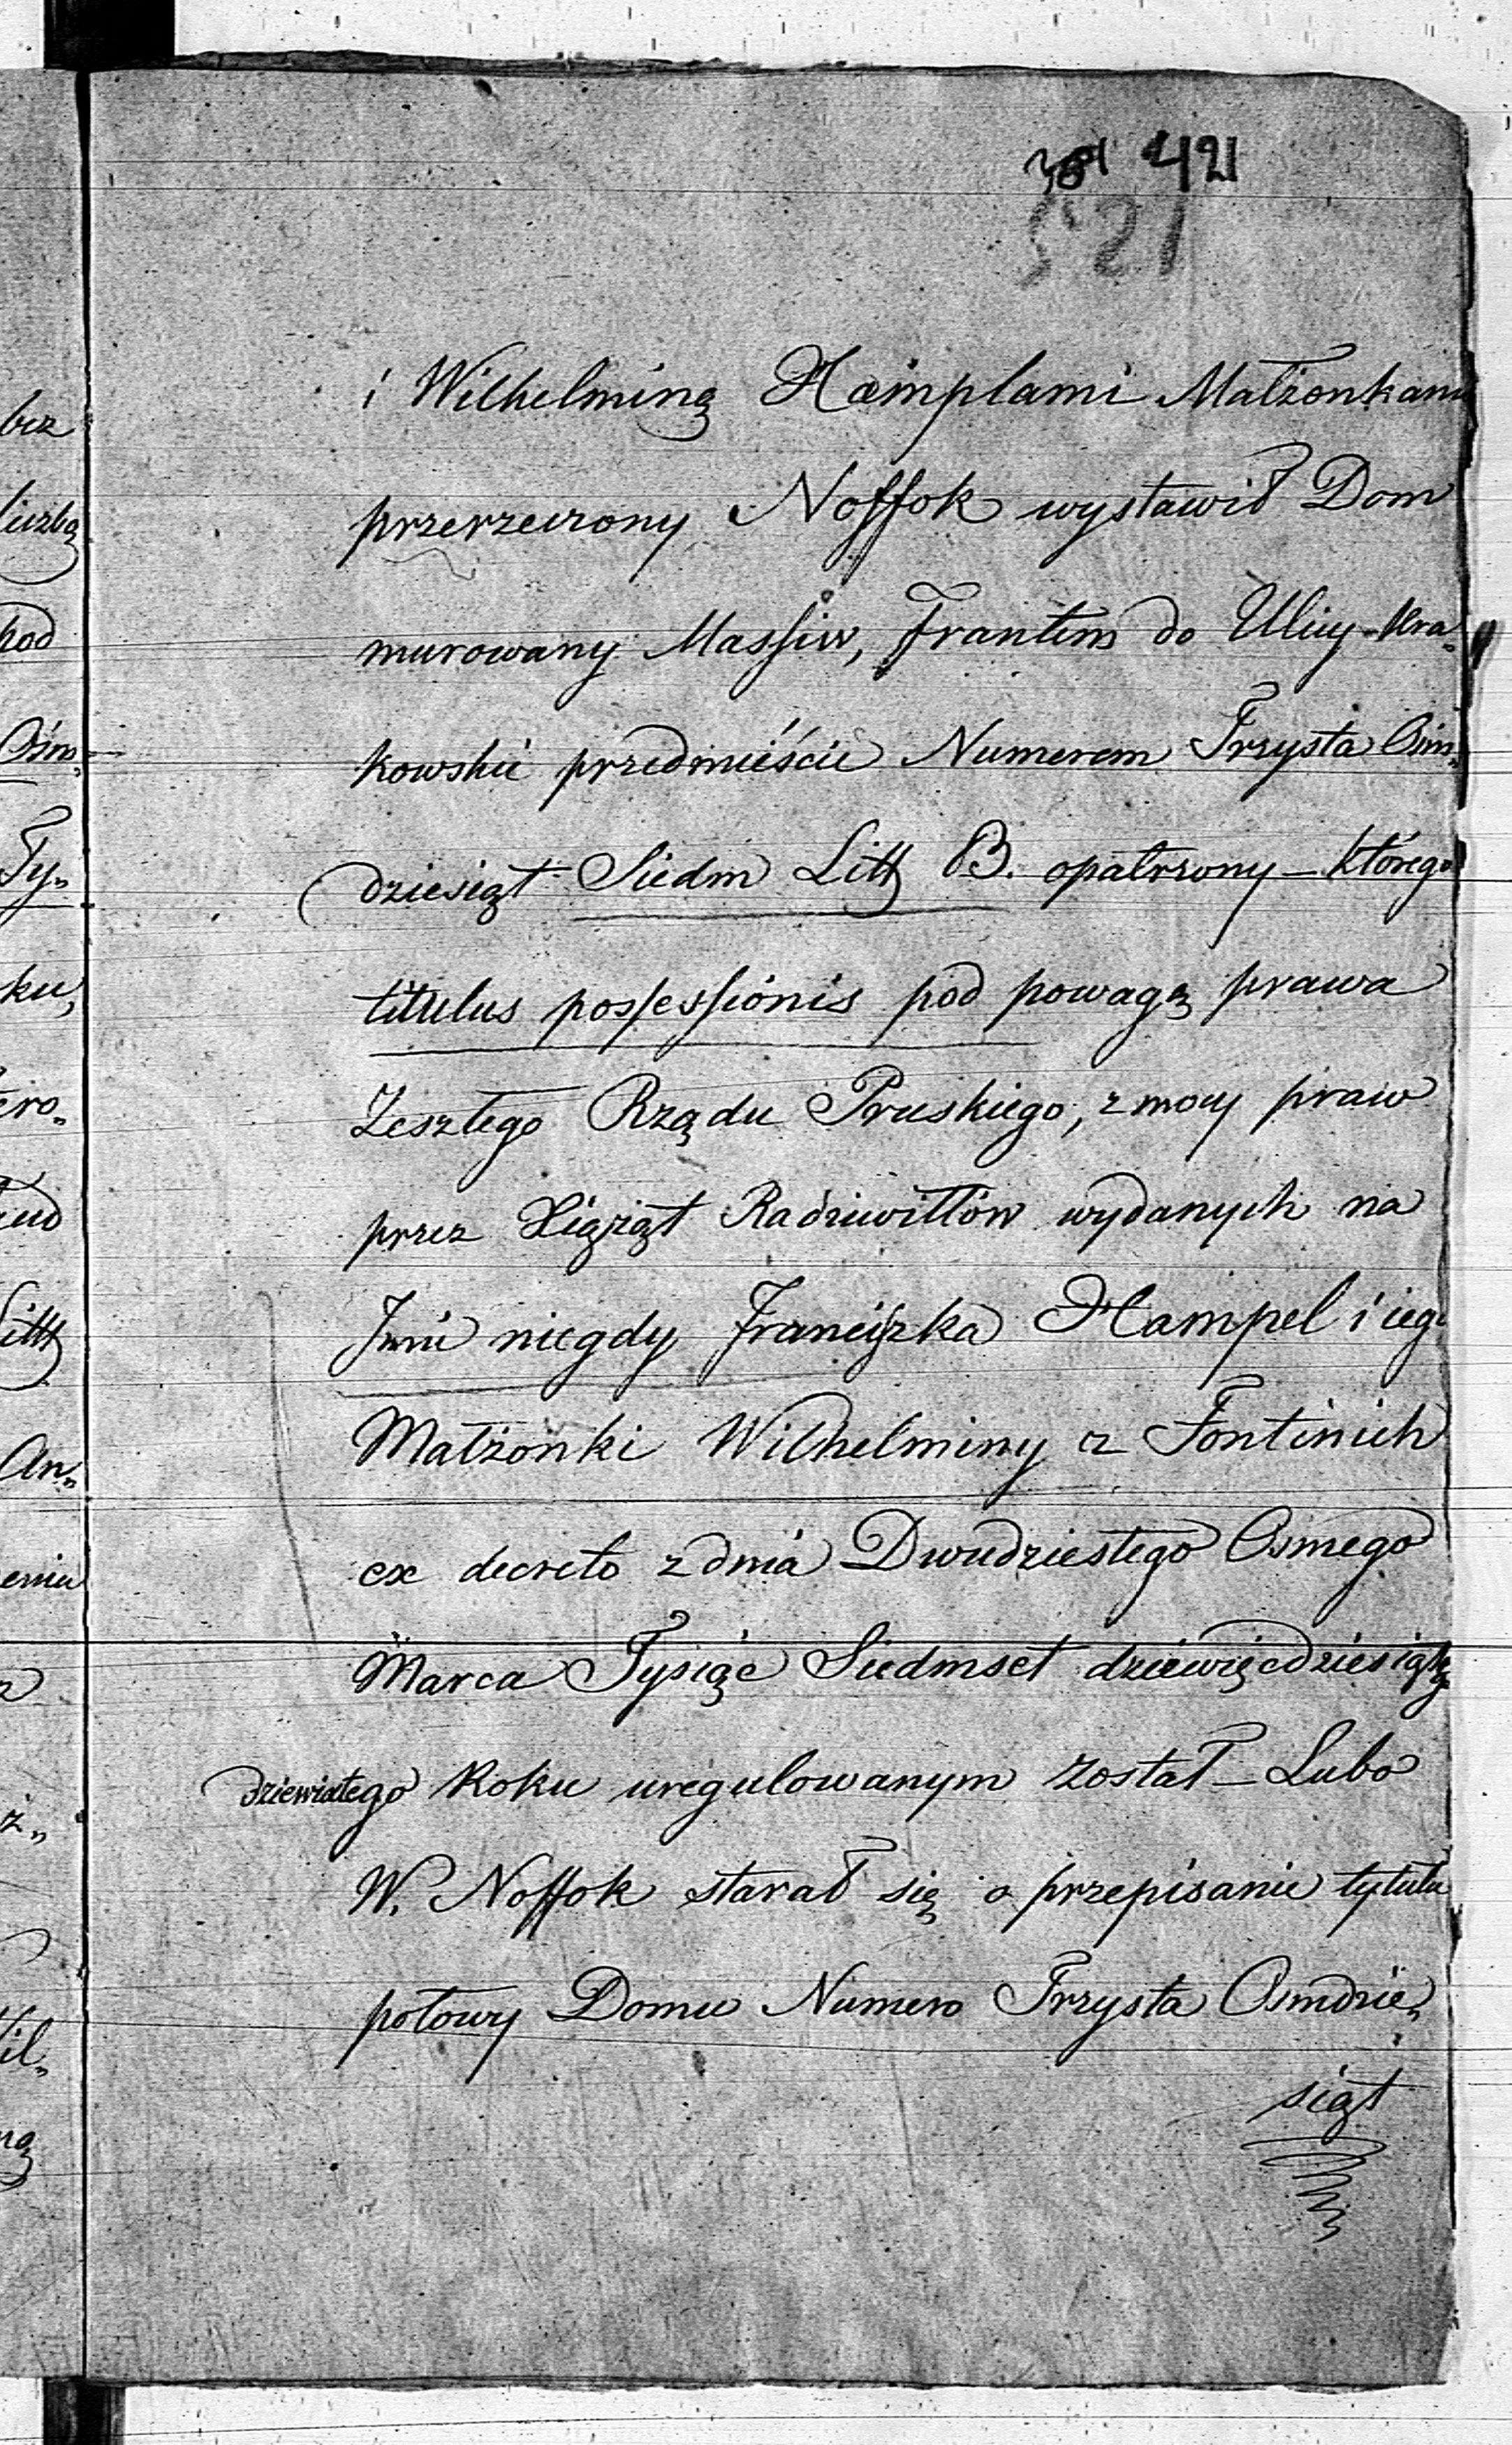 bez
liczbą
pod
Ośm„
Ty„
ku,
ero„
Litt
An„
eniu
ż„
il„
ną
i Wilhelminą Hamplami Małżonkami
przerzeczony Noffok wystawił Dom
murowany Massiw, frontem do Ulicy Kra„
kowskie przedmieście Numerem Trzysta Ośm„
dziesiąt Siedm Litt B. opatrzony – którego
titulus possessionis pod powagą prawa
Zeszłego Rządu Pruskiego, z mocy praw
przez Xiąząt Radziwiłłów wydanych na
Imie niegdy Franciszka Hampel i iego
Małżonki Wilhelminy z Fontinich
ex decreto z dnia Dwudziestego Osmego
Marca Tysiąc Siedmset dziewięcdziesiąt
dziewiątego Roku uregulowanym został – Lubo
W. Noffok starał się o przepisanie tytułu
połowy Domu Numero Trzysta Osmdzie„
siąt